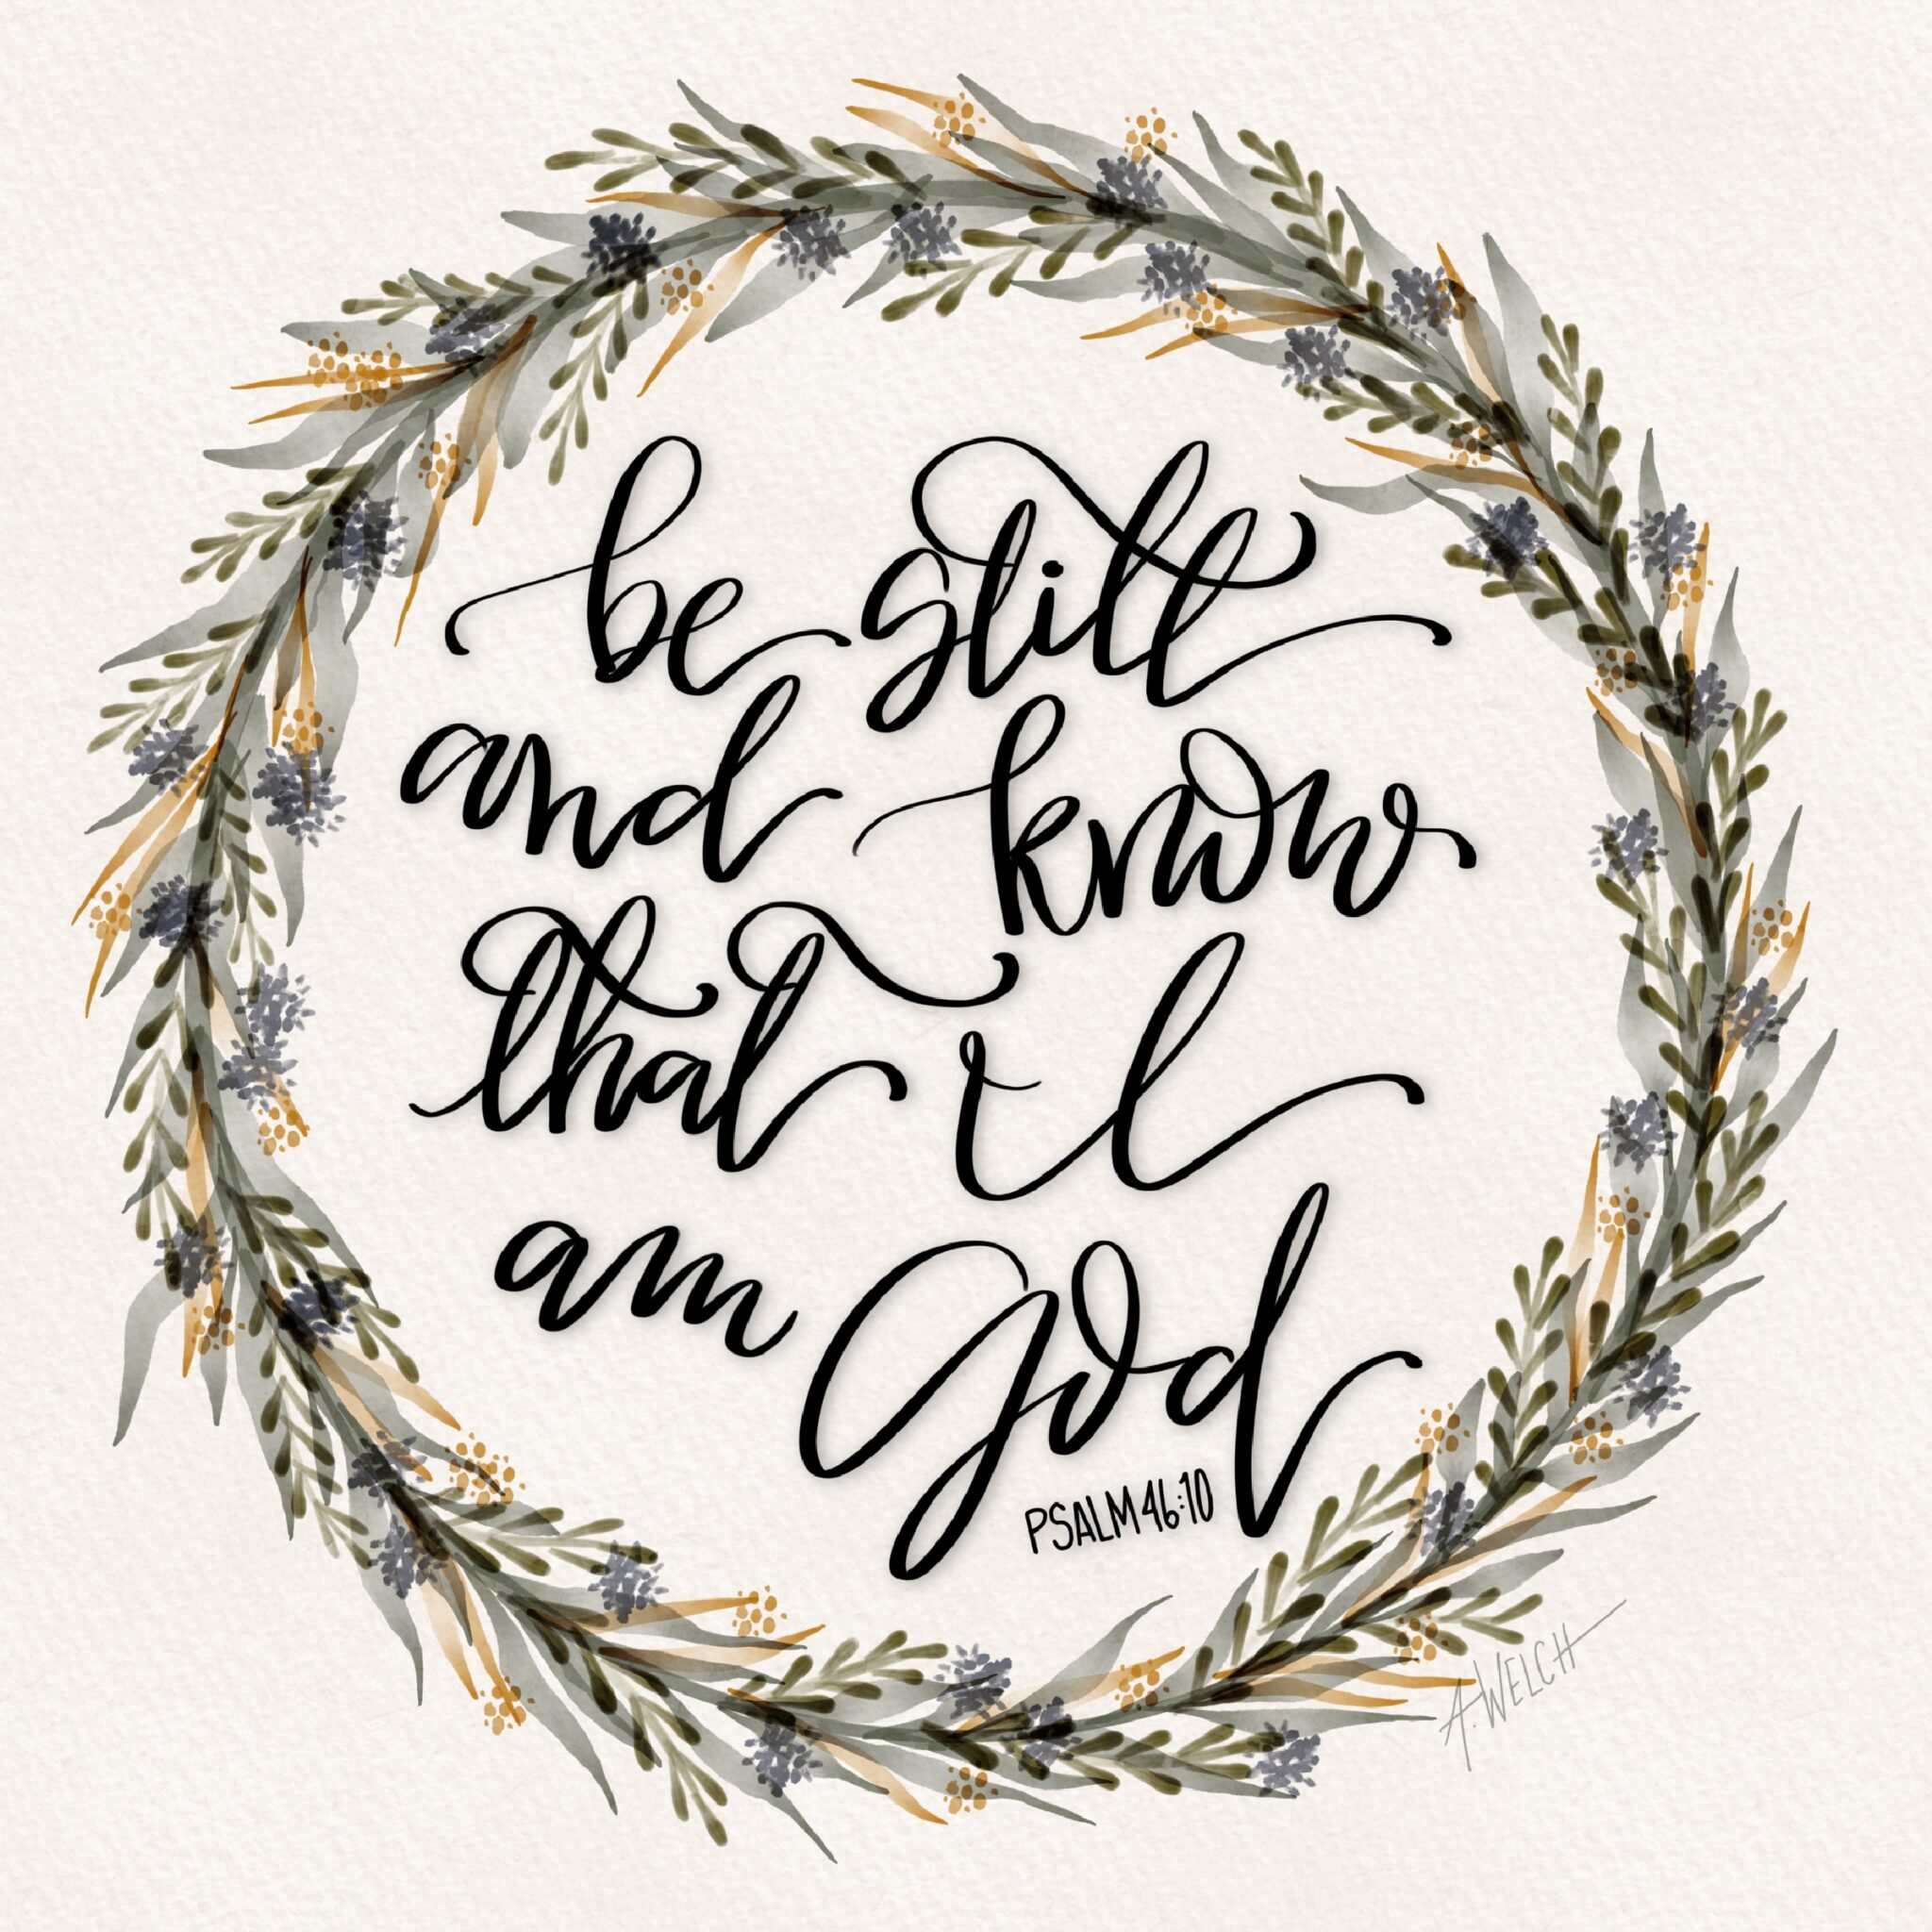 be still
and know
that I
am God
PSALM 46:10
A. WELCH